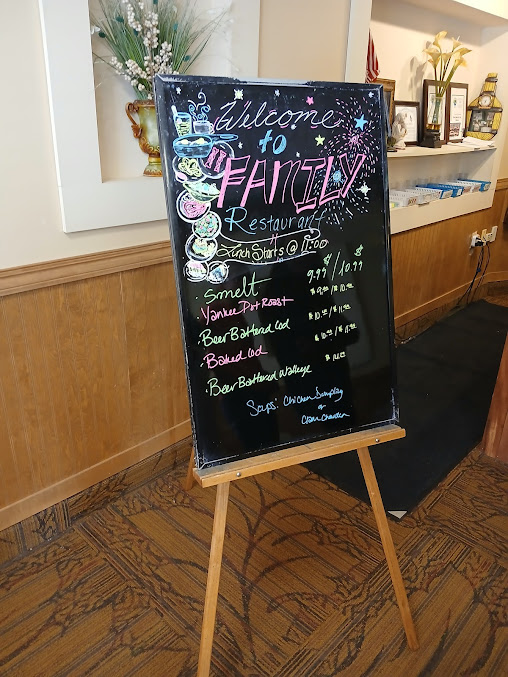 Welcome
to
FAMILY
Restaurant
Lunch Starts @ 11:00
· Smelt 9.99 $ / 10.99 $
· Yankee Pot Roast $ 9.99 / $ 10.99
· Beer Battered Cod $ 10.99 / $ 11.99
· Baked Cod $ 10.99 / $ 11.99
· Beer Battered Walleye
Soups: Chicken Dumpling
or
Clam Chowder